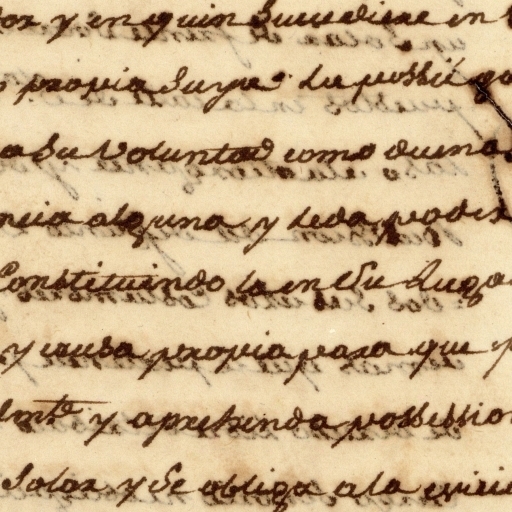 y en quien Suxediere en
propia Suya la posseé
a Su Voluntad como duena
ncia alguna y leda poder
Constituiendo la en Su Luga
y causa propia para que
lmte y aprehenda possession
Solar y Se obliga a la evicc